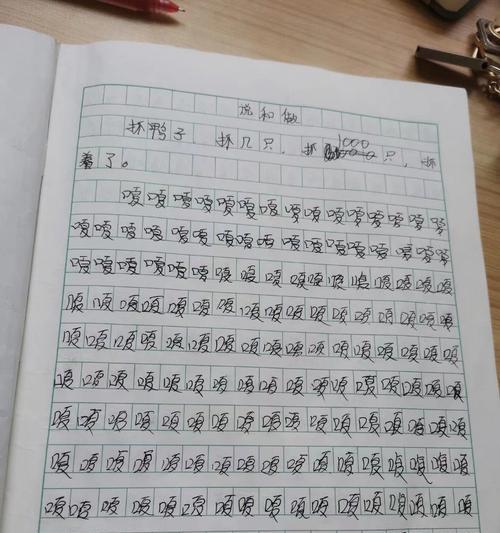 说和做
抓鸭子 抓几只，抓1000只，抓
着了。
嘎嘎嘎嘎嘎嘎嘎嘎嘎嘎嘎嘎嘎嘎嘎
嘎嘎嘎嘎嘎嘎嘎嘎嘎嘎嘎嘎嘎嘎嘎嘎嘎
嘎嘎嘎嘎嘎嘎嘎嘎嘎嘎嘎嘎嘎嘎嘎嘎嘎
嘎嘎嘎嘎嘎嘎嘎嘎嘎嘎嘎嘎嘎嘎嘎嘎嘎
嘎嘎嘎嘎嘎嘎嘎嘎嘎嘎嘎嘎嘎嘎嘎嘎嘎
嘎嘎嘎嘎嘎嘎嘎嘎嘎嘎嘎嘎嘎嘎嘎嘎嘎
嘎嘎嘎嘎嘎嘎嘎嘎嘎嘎嘎嘎嘎嘎嘎嘎嘎
嘎嘎嘎嘎嘎嘎嘎嘎嘎嘎嘎嘎嘎嘎嘎嘎嘎
嘎嘎嘎嘎嘎嘎嘎嘎嘎嘎嘎嘎嘎嘎嘎嘎